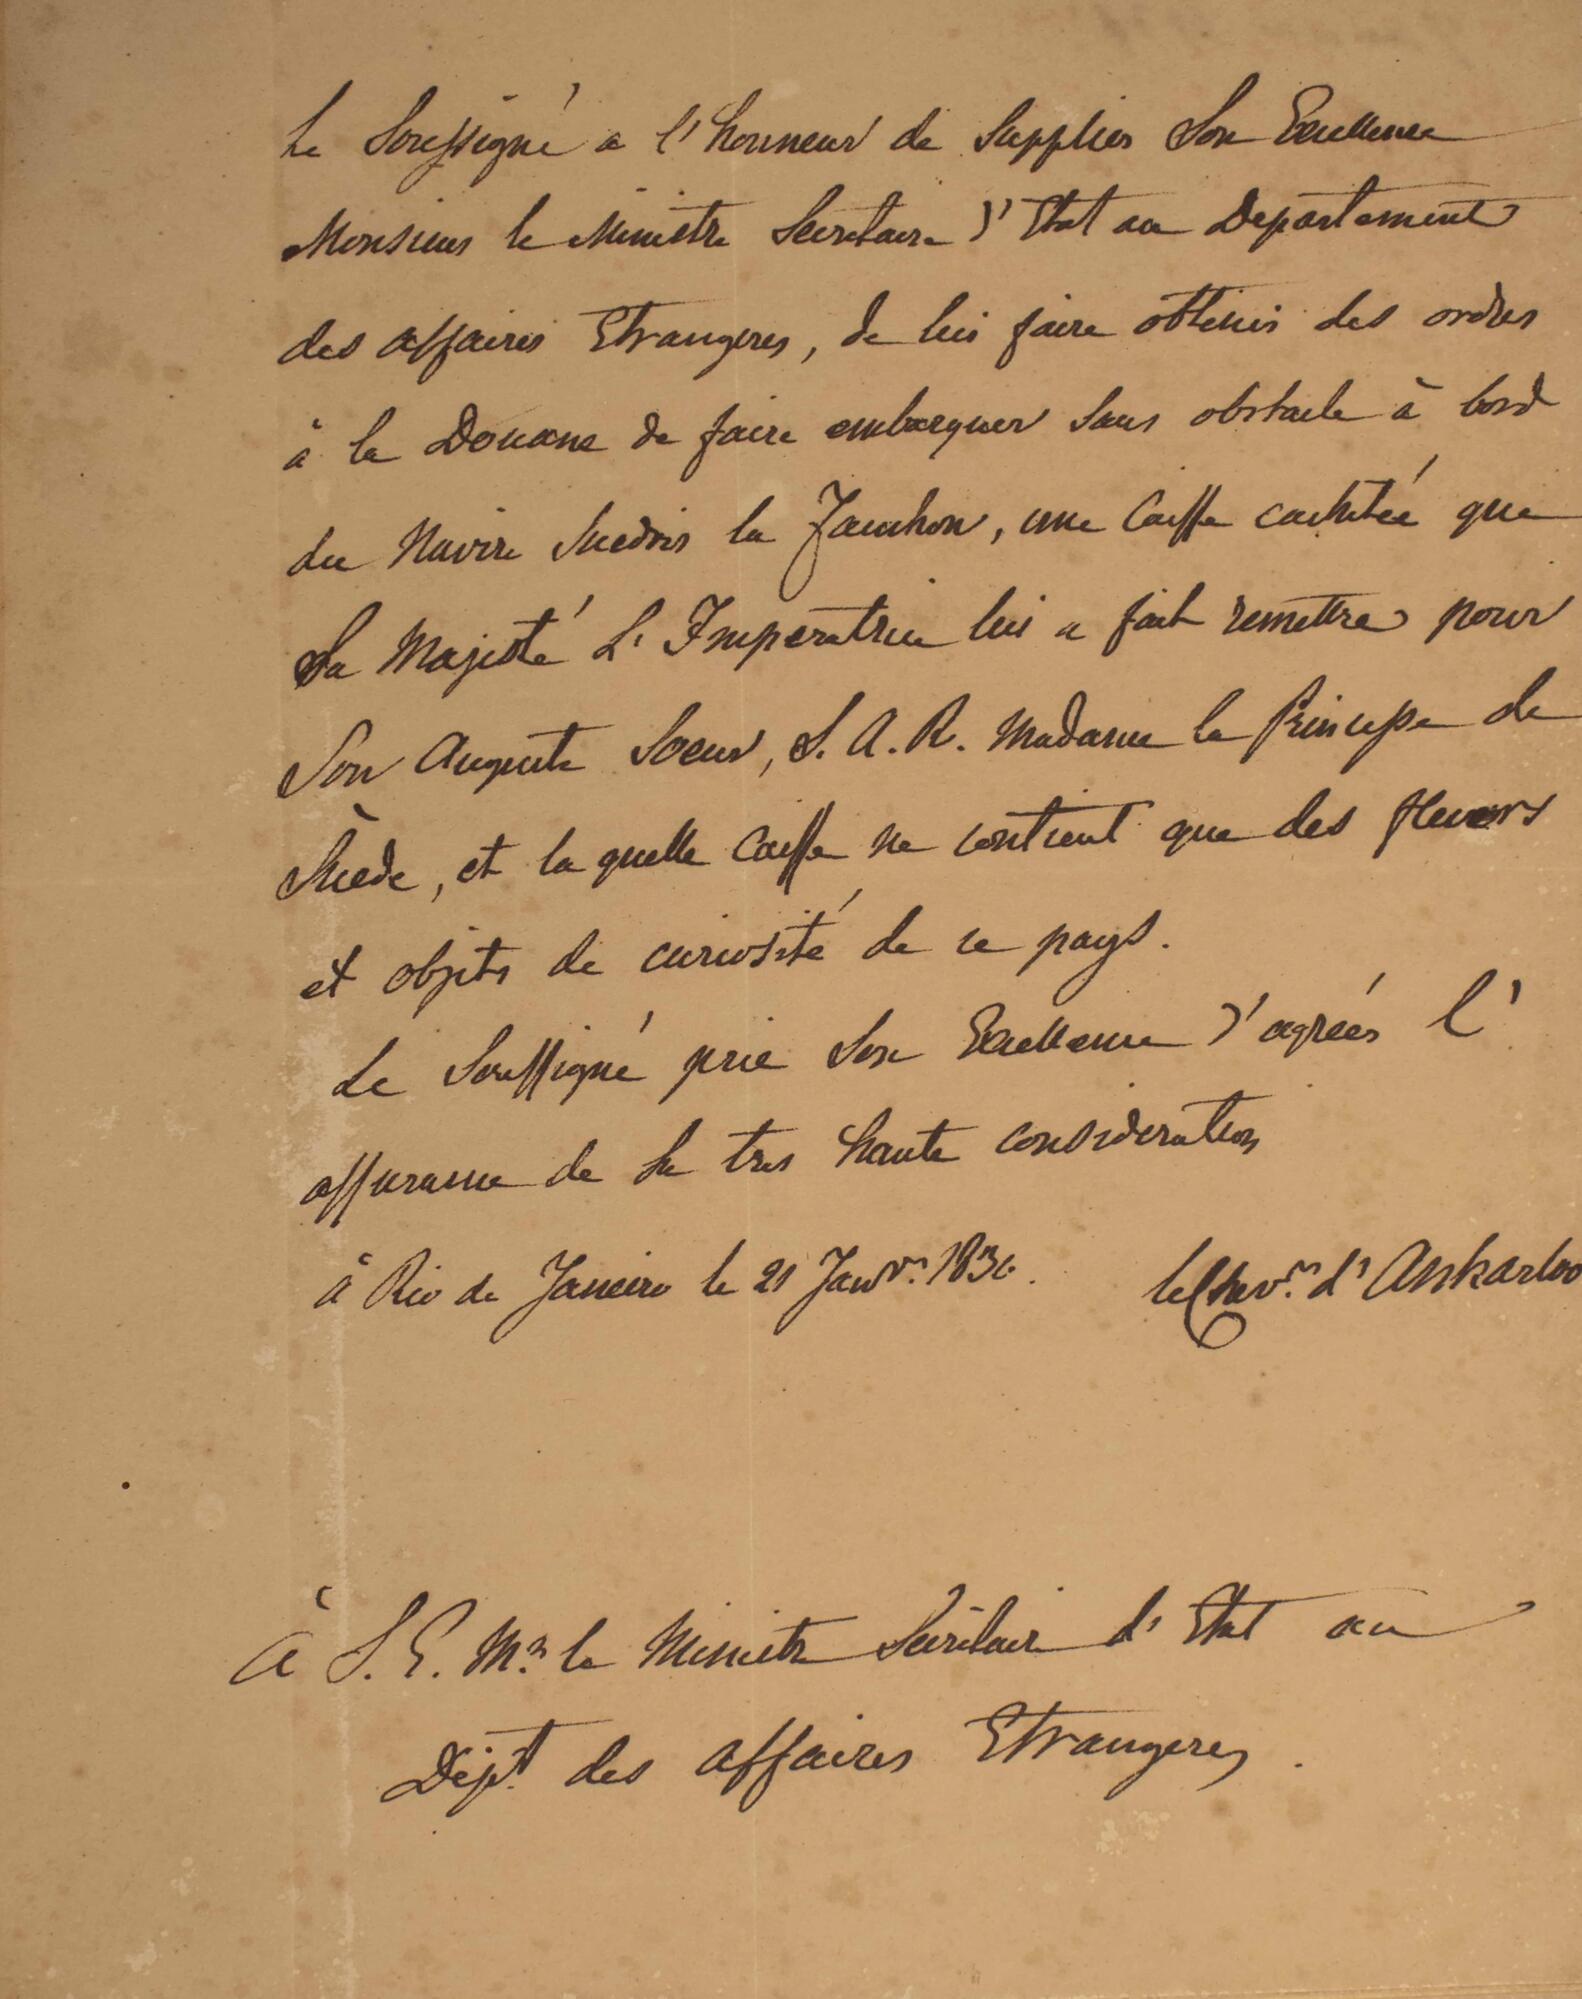 Le Soussigné a l'honneur de Supplier Son Excellence
Monsieur le Ministre Secretaire d'Etat au Departement
des affaires Etrangeres, de lui faire obtenir des ordres
à la Douane de faire embarquer sans obstacle à bord
du Navire Suedois la, une Caisse cachetée que
Sa Majesté L'Imperatrice lui a fait remettre pour
Son Auguste Soeur, S. A. R. Madame la Princesse de
Suède, et la quelle Caisse ne contient que des fleurs
et objets de curiosité de ce pays.
Le Soussigné prie Son Excellence d'agréer l'
assurance de Sa tres haute consideration
à Rio de Janeiro le 21 Janvr. 1830. le Chevr. d'Ankarloo
à S. E. Mr. le Ministre Secrétaire d'Etat au
Dépt. des affaires Etrangeres.